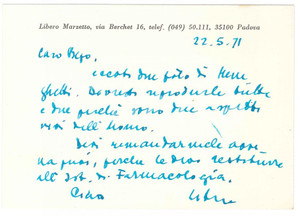 Libero Marzetto, via Berchet 16, telef. (049) 50.111, 35100 Padova
22.5.71
Caro Bepo,
eccoti due foto di Mene
ghetti. Dovresti riprodurle tutte
e due perchè sono due aspetti
vivi dell'uomo.
Devi rimandarmele appe
na puoi, perchè le devo restituire
all'Ist. di Farmacologia.
Ciao Libero